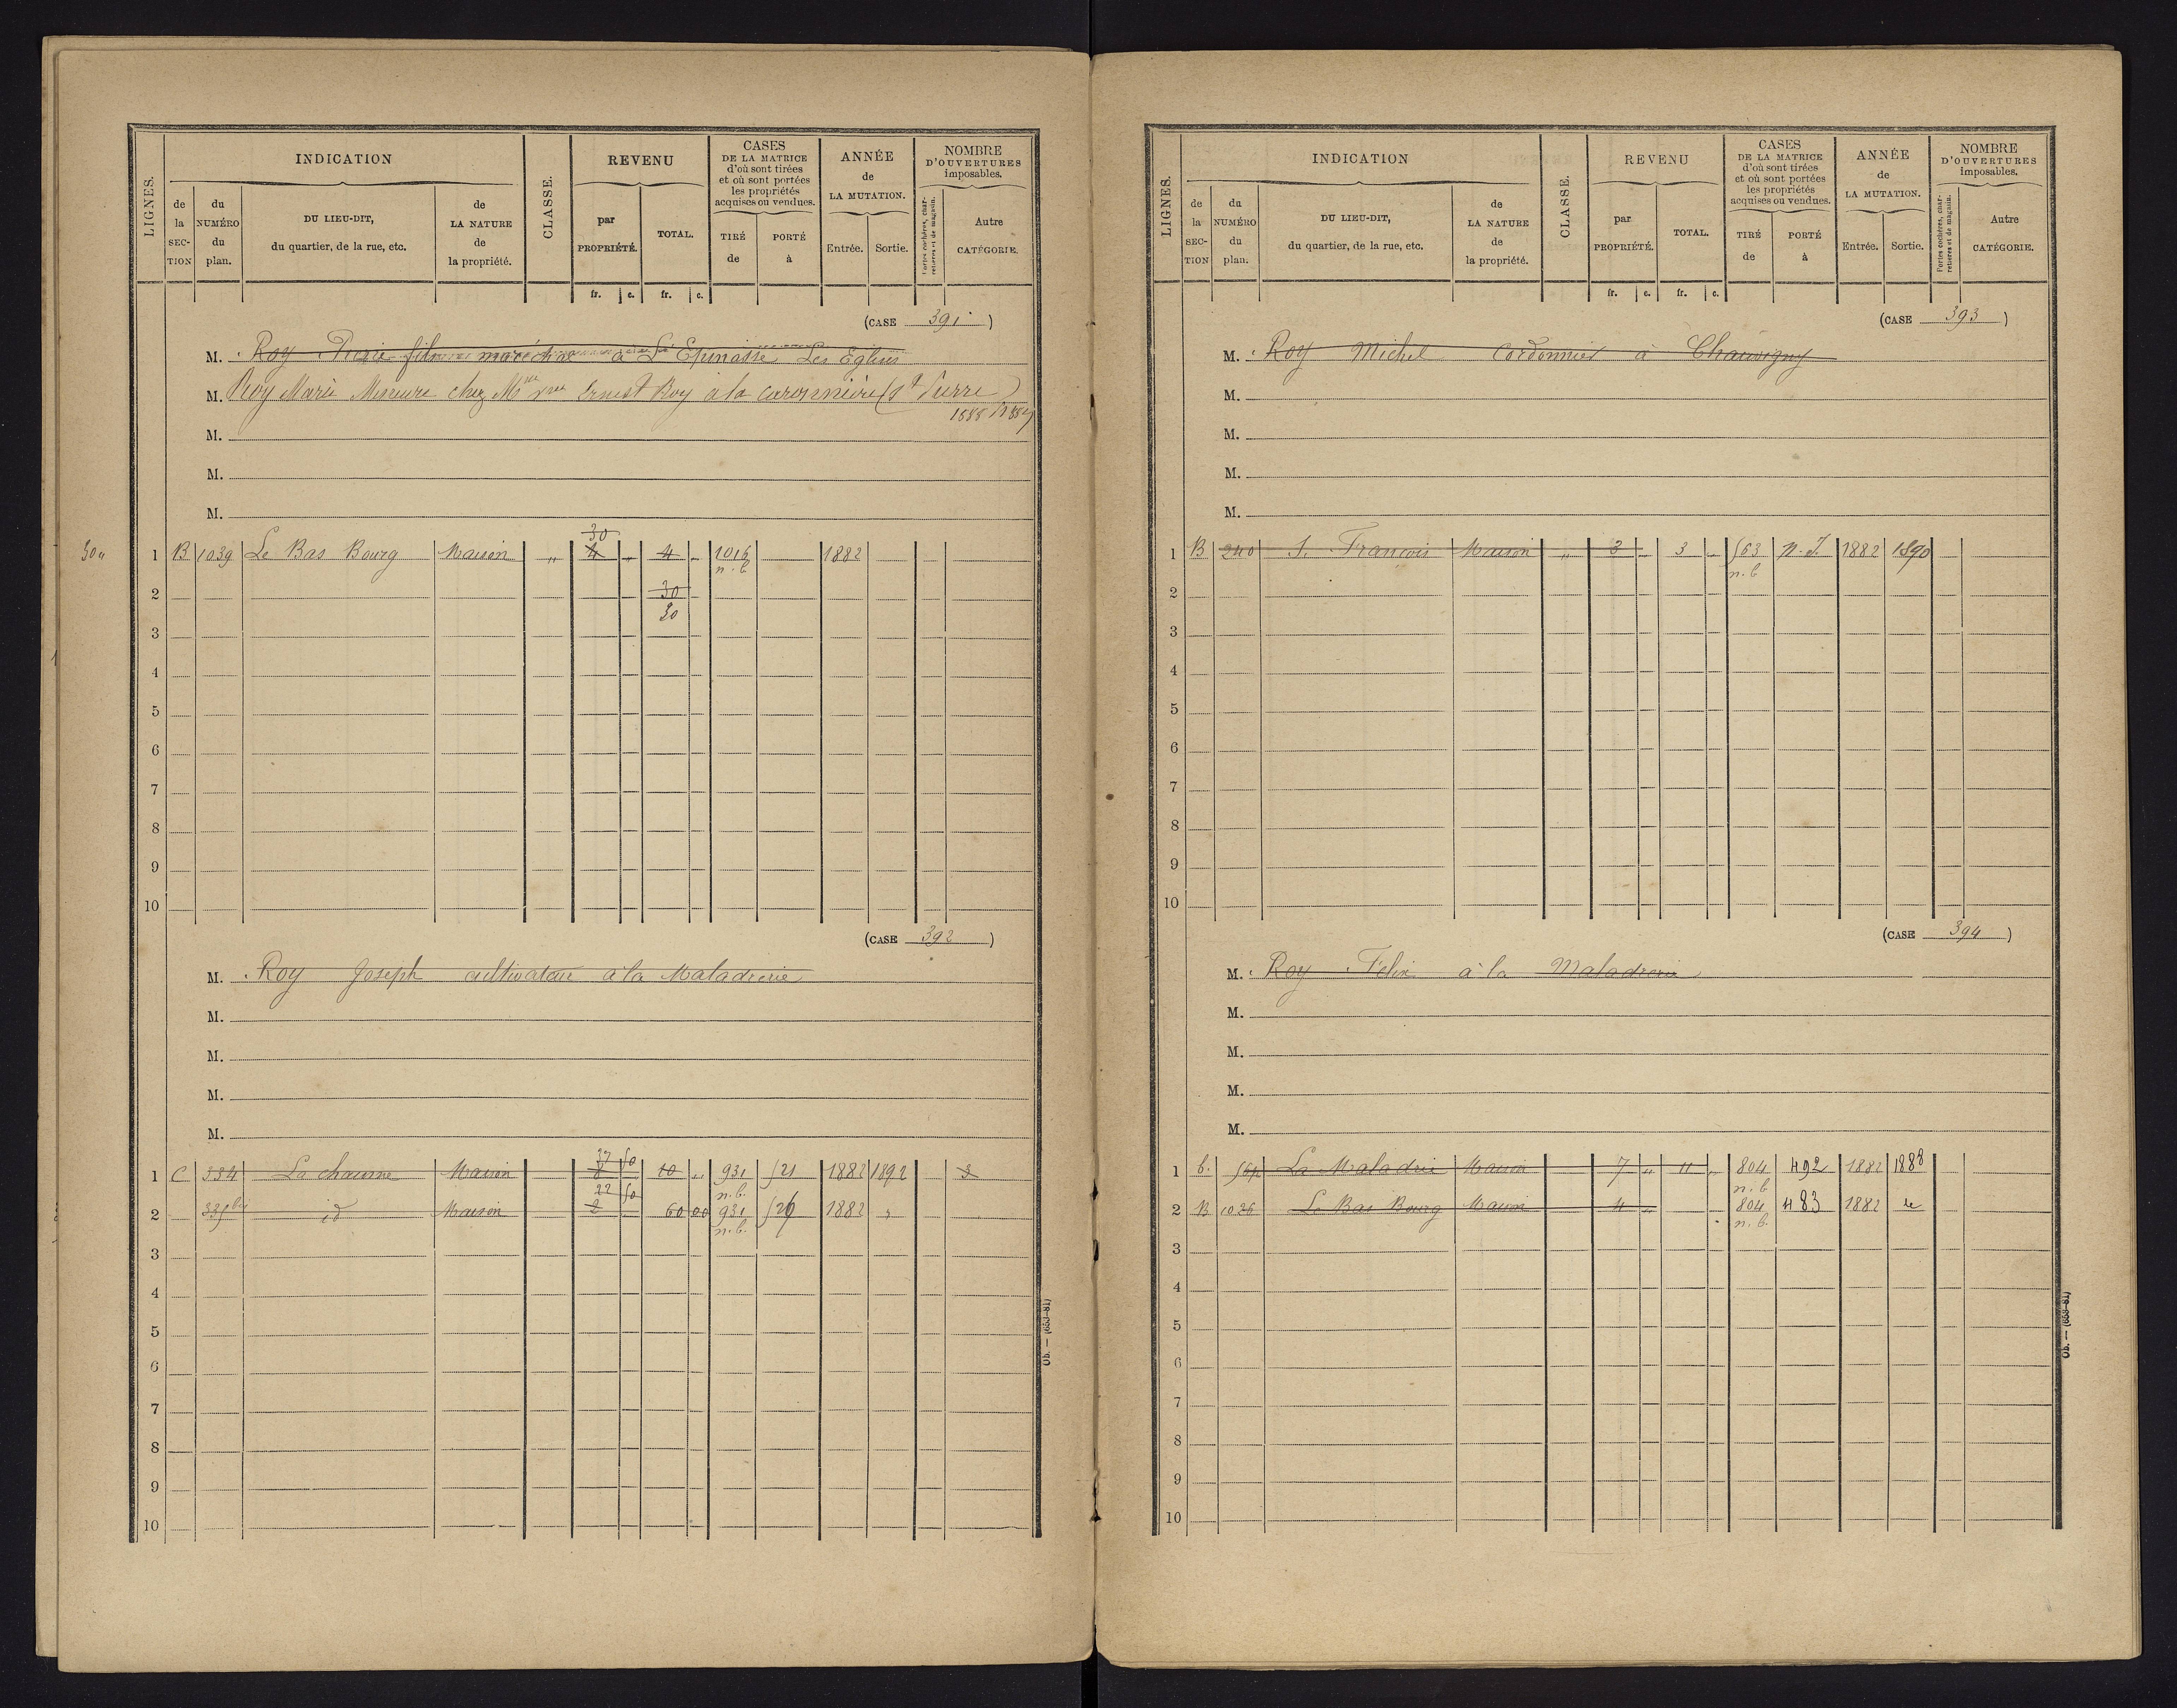 LIGNES.
INDICATION
CLASSE.
REVENU
CASES
DE LA MATRICE
d'où sont tirées
et où sont portées
les propriétés
acquises ou vendues.
ANNÉE
de
LA MUTATION.
NOMBRE
D'OUVERTURES
imposables.
de la SECTION
du NUMÉRO du plan.
DU LIEU-DIT,
du quartier, de la rue, etc.
de LA NATURE de la propriété.
par PROPRIÉTÉ.
TOTAL.
TIRÉ de
PORTÉ à
Entrée.
Sortie.
Portes cochères, charretières et de magasin.
Autre CATÉGORIE.
fr. c. fr. c.
(CASE 391)
M. Roy fils maréchal à Epinasse Les Eglises
M. Roy Marie Mineure chez Mme Vve Ernest Roy à la (St Pierre)
1888
M.
M.
M.
30
1 B 1039 Le Bas Bourg Maison " 4 " 4 " 1016 1882
n.b.
2 30
3 30
4
5
6
7
8
9
10
(CASE 392)
M. Roy Joseph cultivateur à la Maladrerie
M.
M.
M.
M.
37 50
1 C 334 La chaume Maison 8 10 " 931 521 1882 1892 3
n.b.
22 50
2 335 bis id Maison 2 60 00 931 526 1882 "
n.b.
3
4
5
6
7
8
9
10
Ob. — (653-81)
LIGNES.
INDICATION
CLASSE.
REVENU
CASES
DE LA MATRICE
d'où sont tirées
et où sont portées
les propriétés
acquises ou vendues.
ANNÉE
de
LA MUTATION.
NOMBRE
D'OUVERTURES
imposables.
de la SECTION
du NUMÉRO du plan.
DU LIEU-DIT,
du quartier, de la rue, etc.
de LA NATURE de la propriété.
par PROPRIÉTÉ.
TOTAL.
TIRÉ de
PORTÉ à
Entrée.
Sortie.
Portes cochères, charretières et de magasin.
Autre CATÉGORIE.
fr. c. fr. c.
(CASE 393)
M. Roy Michel Cordonnier à Chauvigny
M.
M.
M.
M.
1 B 240 S. François Maison " 3 " 3 " 563 1882 1890
n.b
2
3
4
5
6
7
8
9
10
(CASE 394)
M. Roy Félix à la Maladrerie
M.
M.
M.
M.
1 b. 564 La Maladrie Maison 7 " 11 " 804 492 1882 1888
n.b
2 B 1026 Le Bas Bourg Maison 4 " 804 483 1882
n.b.
3
4
5
6
7
8
9
10
Ob. — (653-81)